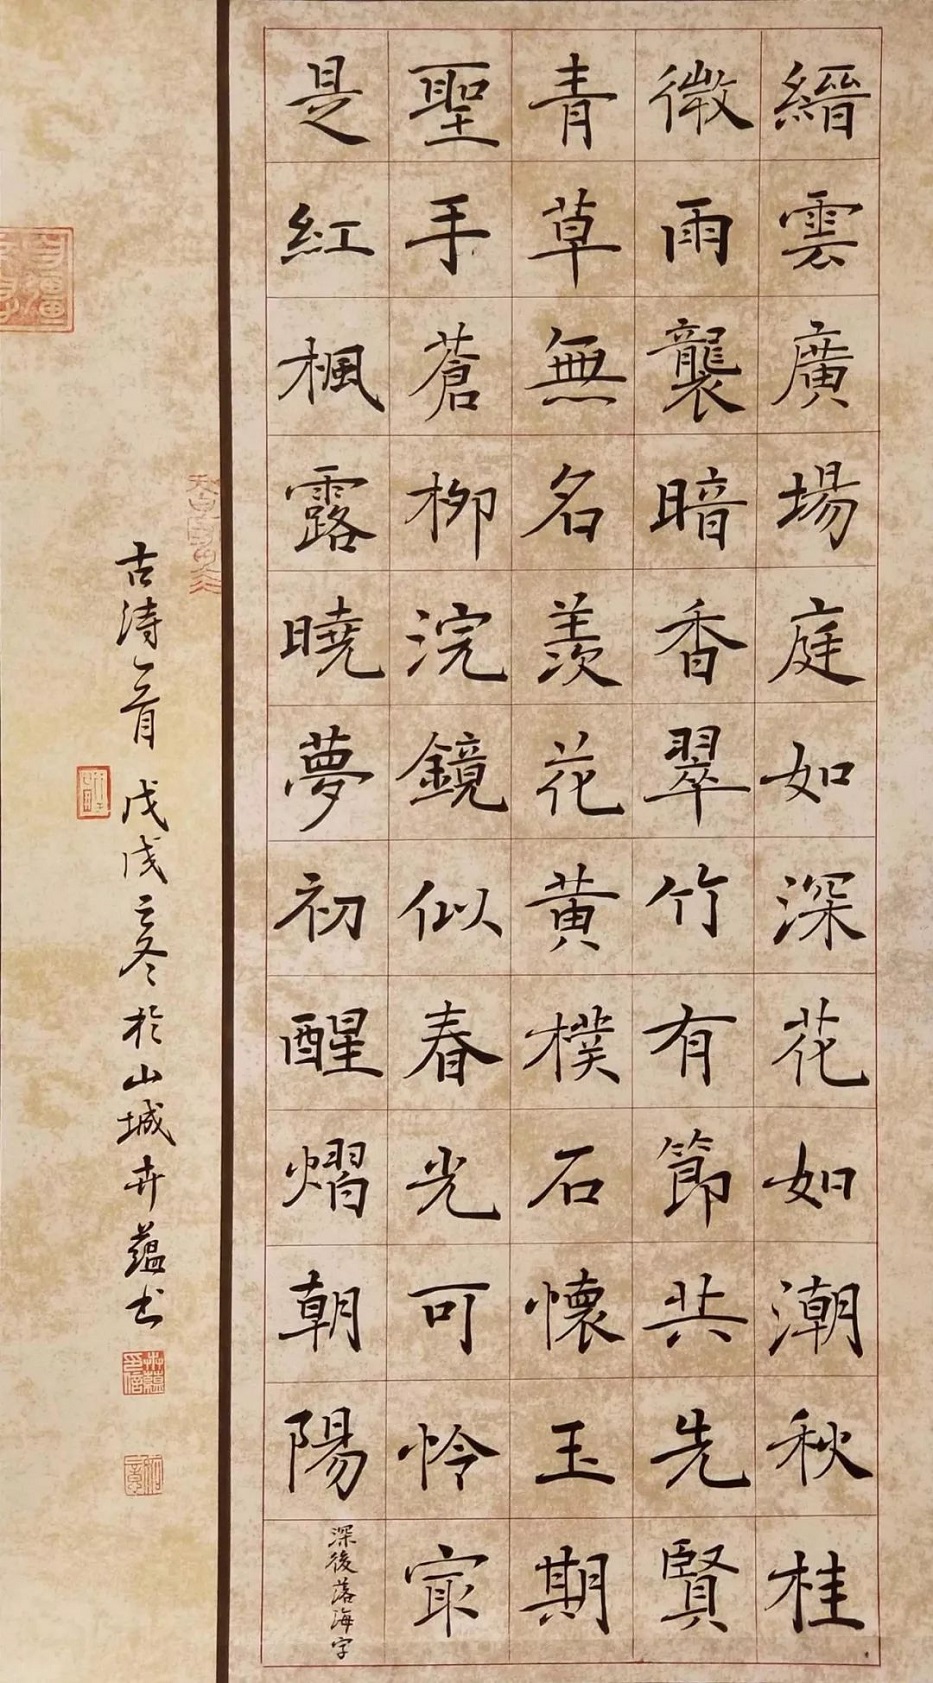 縉雲廣場庭如深花如潮秋桂
微雨襲暗香翠竹有節共先賢
青草無名羨花黃樸石懷玉期
聖手蒼柳浣鏡似春光可憐寂
是紅楓露曉夢初醒熠朝陽
深後落海字
古詩一首 戊戌之冬於山城卉蘊书
卉蘊